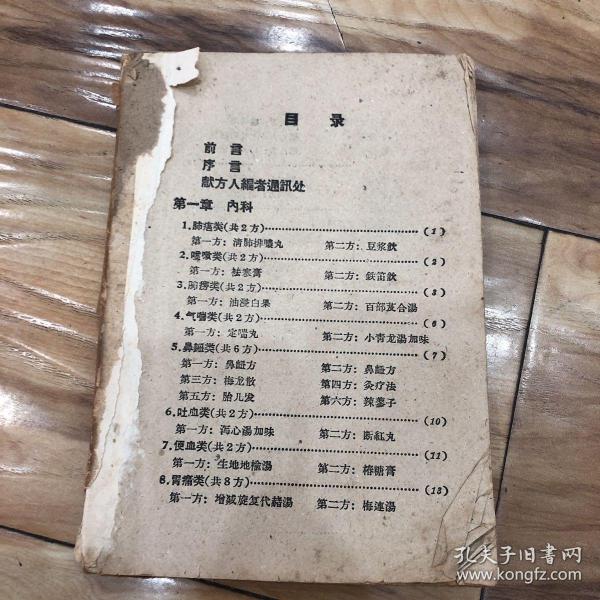 目录
前言
序言
献方人編者通訊处
第一章 內科
1.肺痈类(共2方)…………(1)
第一方：清肺排膿丸 第二方：豆浆飲
2.咳嗽类(共2方)…………(2)
第一方：祛寒膏 第二方：鉄笛飲
3.肺痨类(共2方)…………(3)
第一方：油浸白果 第二方：百部百合湯
4.气喘类(共2方)…………(6)
第一方：定喘丸 第二方：小青龙湯加味
5.鼻衄类(共6方)…………(7)
第一方：鼻衄方 第二方：鼻衄方
第三方：梅龙散 第四方：灸疗法
第五方：胎儿发 第六方：辣蓼子
6.吐血类(共2方)…………(10)
第一方：泻心湯加味 第二方：断紅丸
7.便血类(共2方)…………(11)
第一方：生地地榆湯 第二方：椿糖膏
8.胃痛类(共8方)…………(13)
第一方：增减旋复代赭湯 第二方：梅連湯
孔夫子旧书网
www.kongfz.com